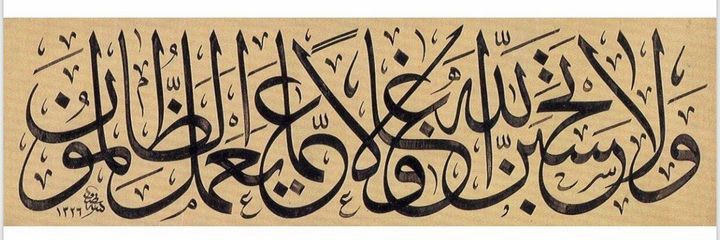 ولا تحسبن الله غافلا عما يعمل الظالمون
١٣٢٦